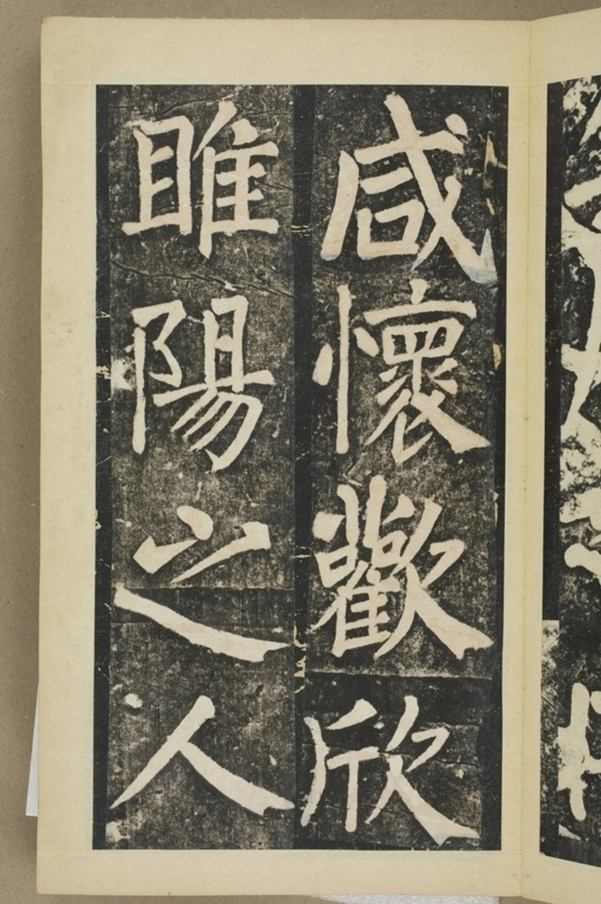 咸懷歡欣
睢陽之人